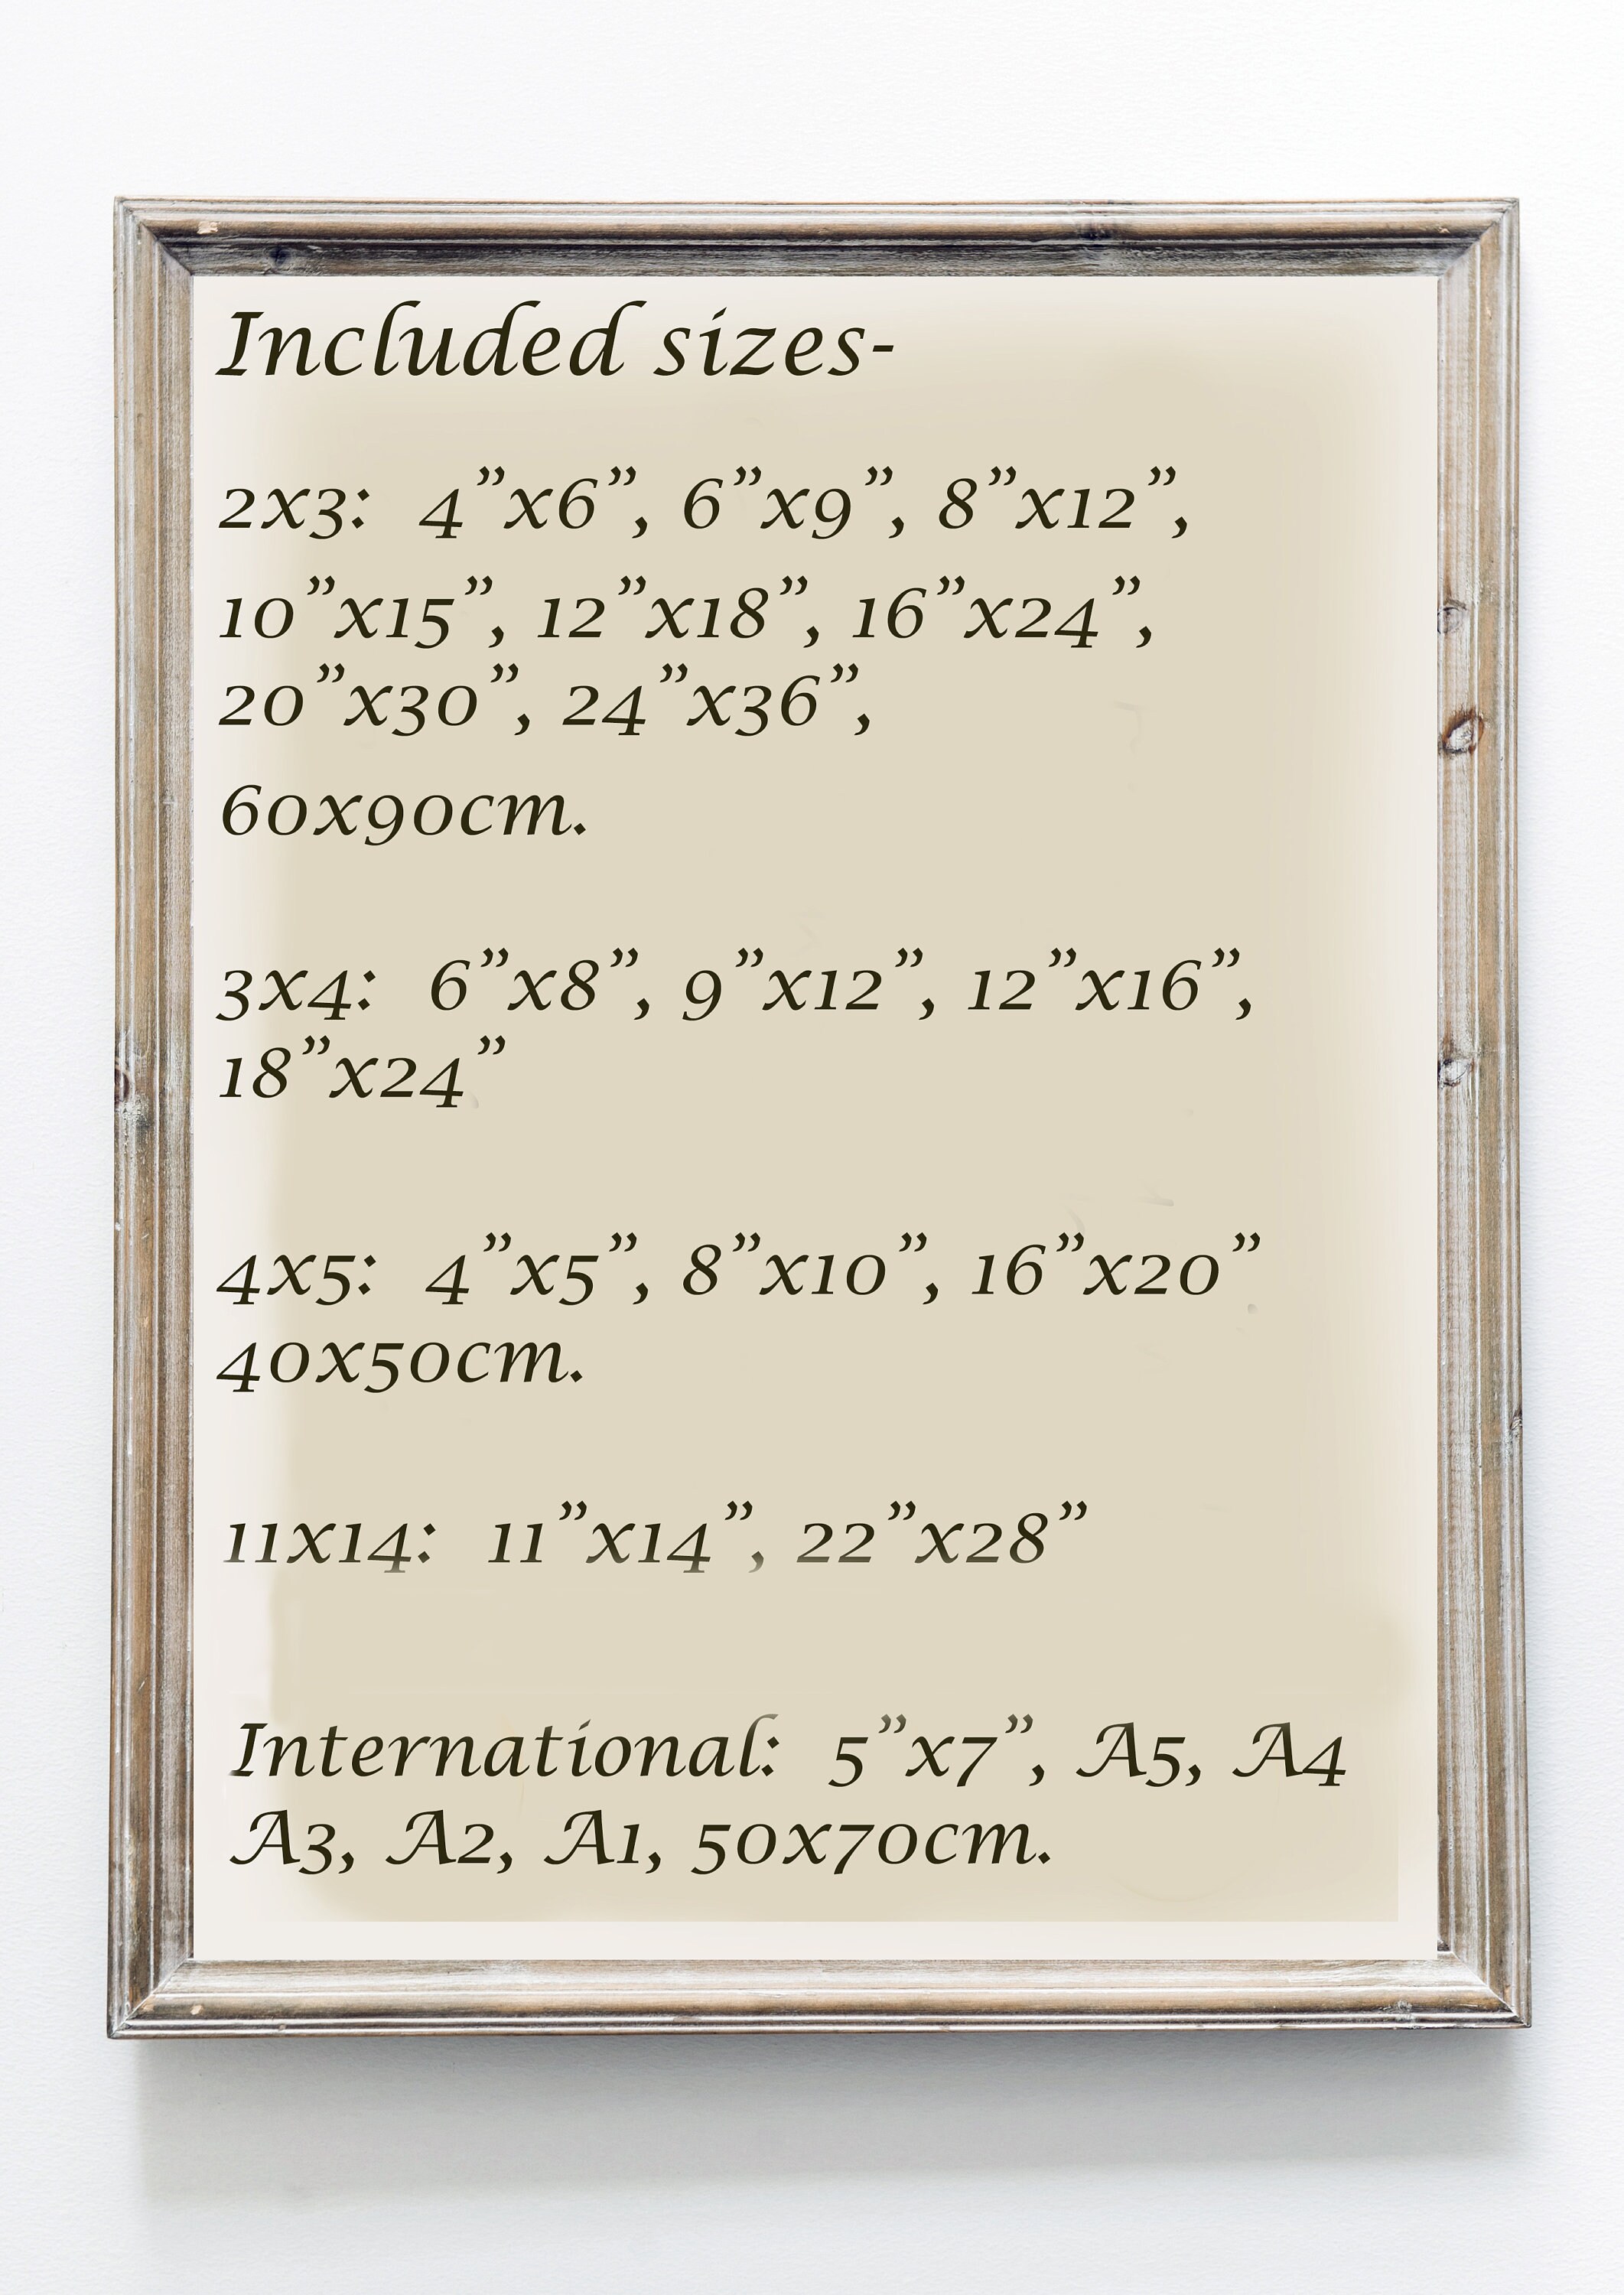 Included sizes-
2x3:  4”x6”, 6”x9”, 8”x12”,
10”x15”, 12”x18”, 16”x24”,
20”x30”, 24”x36”,
60x90cm.
3x4:  6”x8”, 9”x12”, 12”x16”,
18”x24”
4x5:  4”x5”, 8”x10”, 16”x20”
40x50cm.
11x14:  11”x14”, 22”x28”
International:  5”x7”, A5, A4
A3, A2, A1, 50x70cm.